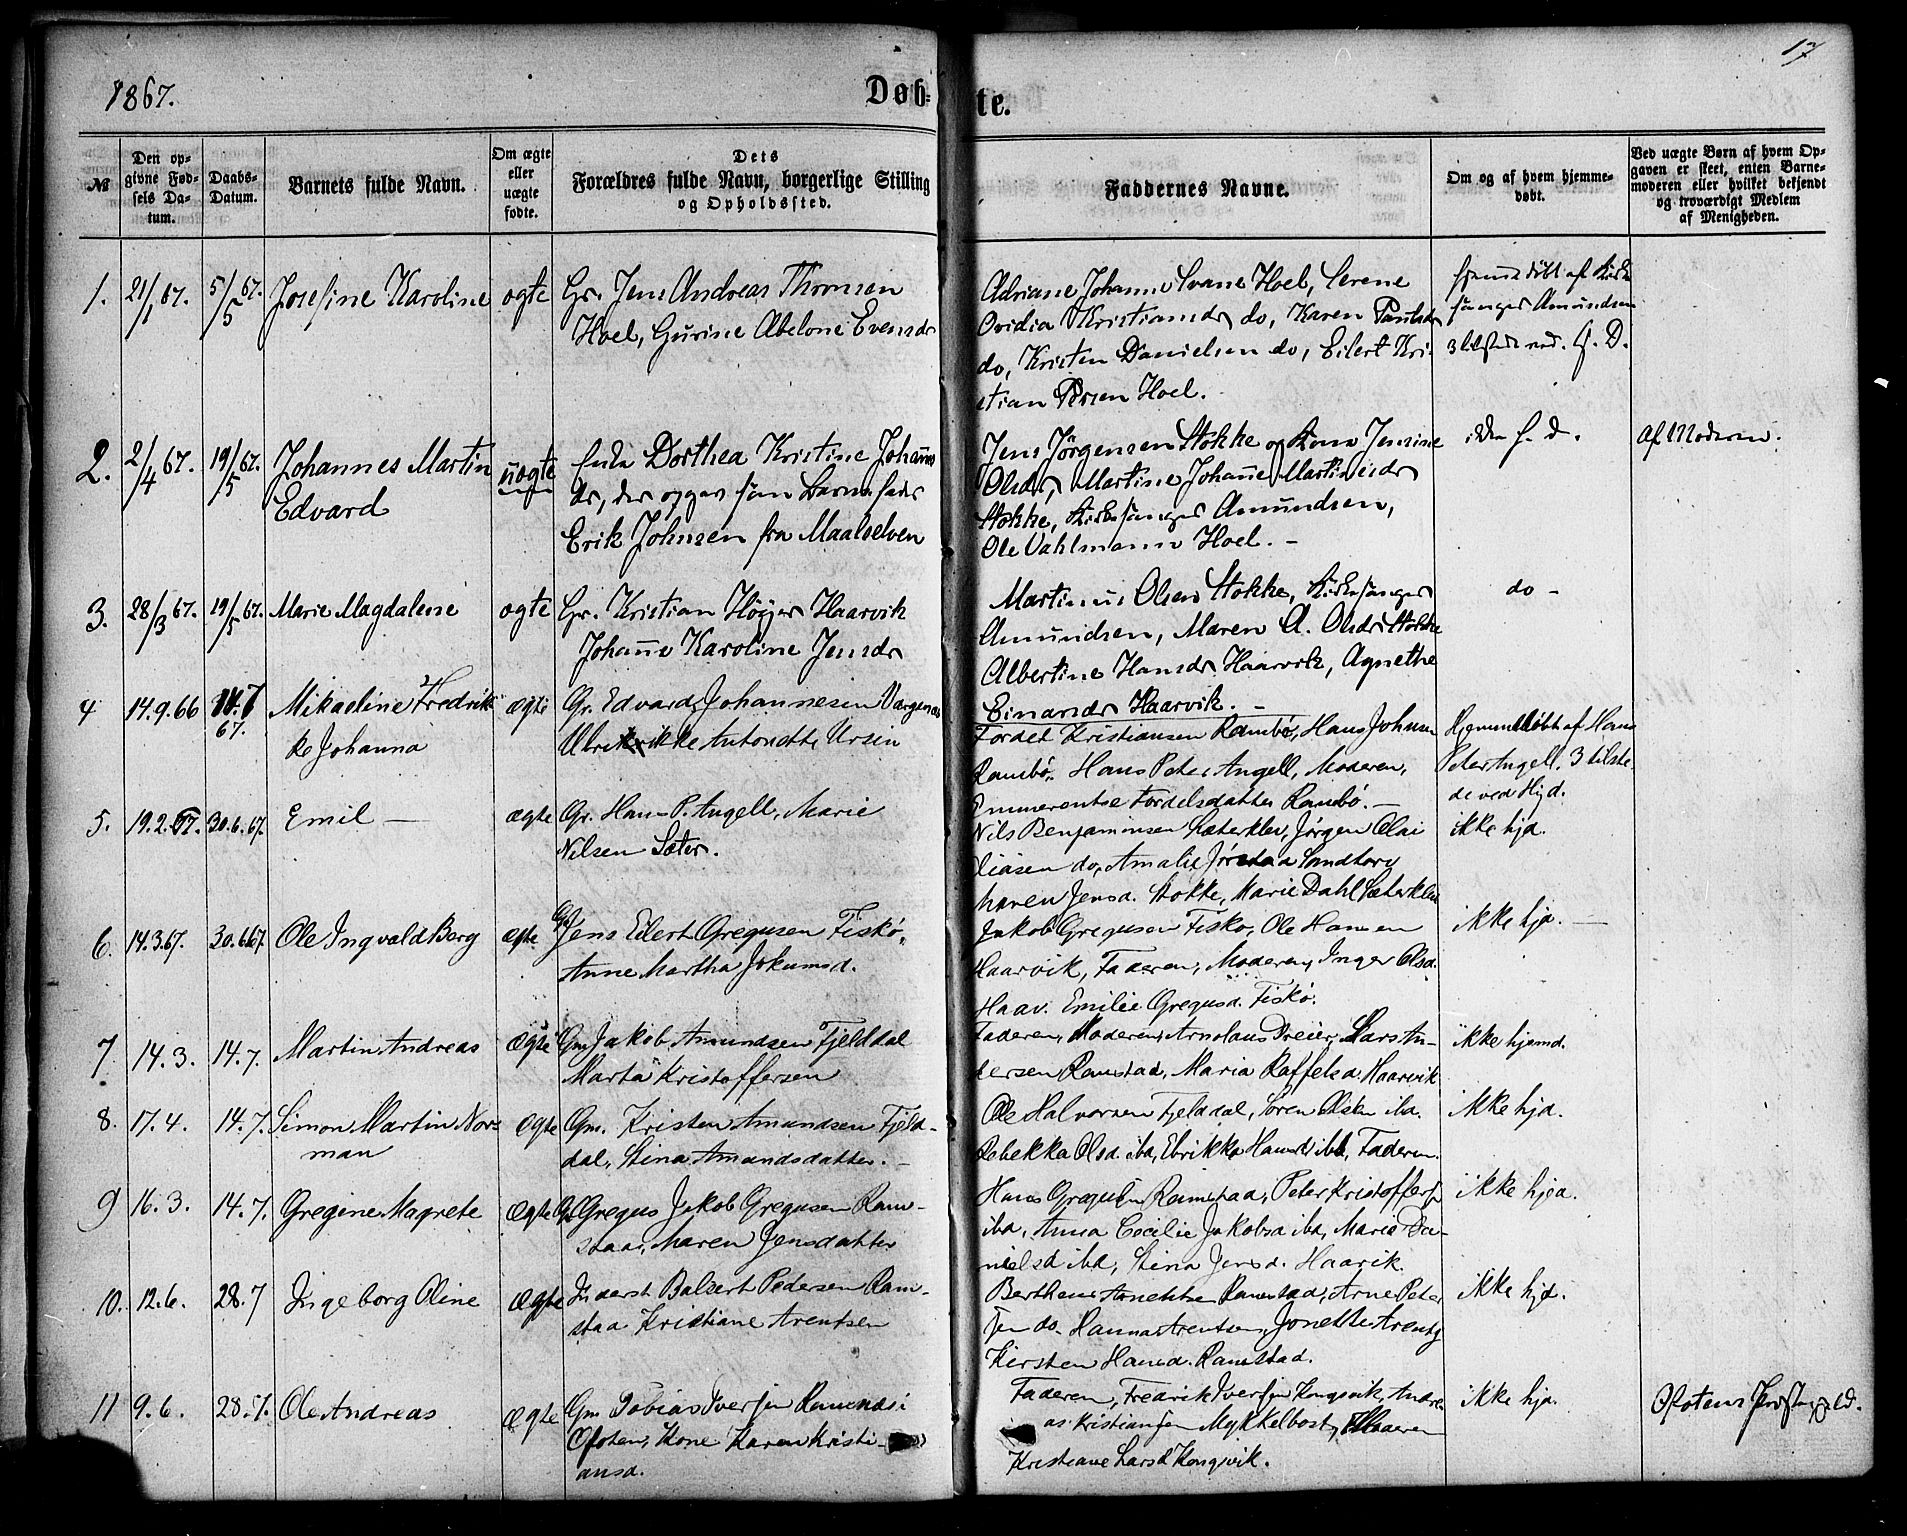 1867.
Døb-
te.
17
№
Den op-
givne Fød-
sels Da-
tum.
Daabs-
Datum.
Barnets fulde Navn.
Om ægte
eller
uægte
fødte.
Dets
Forældres fulde Navn, borgerlige Stilling
og Opholdssted.
Faddernes Navne.
Om og af hvem hjemme-
døbt.
Ved uægte Børn af hvem Op-
gaven er skeet, enten Barne-
moderen eller hvilket bekjendt
og troværdigt Medlem
af Menigheden.
1. 21/1 67. 5/5 67. Josefine Karoline ægte Gr. Jens Andreas Thomsen
Hoel, Gurine Abelone Evensdr
Adriane Johanne Svane Hoel, Serene
Ovidia Kristiansdr do, Karen Paulsdr
do, Kristen Danielsen do, Eilert Kri-
stian Persen Hoel.
hjemmedöbt af Kirke
sanger Amundsen
3 tilstede ved H. D.
2. 2/4 67. 19/5 67. Johannes Martin
Edvard
uægte
Enke Dorthea Kristine Johans
dr, der opgav som Barnefader
Erik Johnsen fra Maalselven
Jens Jørgensen Stokke og Kone Jensine
Olsdr, Martine Johane Martinusdr
Stokke, Kirkesanger Amundsen,
Ole Vahlmann Hoel. -
ikke h. d.
Af Moderen.
3. 28/3 67. 19/5 67. Marie Magdalene ægte Gr. Kristian Höyer Haarvik
Johane Karoline Jensdr
Martinus Olsen Stokke, Kirkesanger
Amundsen, Maren A. Olsdr Stokke
Albertine Hansdr Haarvik, Agnethe
Einarsdr Haarvik. -
do -
4 14.9.66 14.7
67.
Mikaeline Fredrik-
ke Johanna
ægte
Gr. Edvard Johannesen Vargenes
Ulrikke Antonette Ursin
Tordel Kristiansen Rambø, Hans Johnsen
Rambø. Hans Peter Angell, Moderen,
Emmerentse Tordelsdatter Rambø. -
Hjemmedöbt af Hans
Peter Angell. 3 tilste-
de ved Hjd.
5. 19.2.67. 30.6.67. Emil — ægte Gr. Hans P. Angell, Marie
Nilsen Sæter.
Nils Benjaminsen Sæterklev, Jørgen Olai
Eliasen do, Amalie Jörstad Sandtorg
Maren Jensd. Stokke, Marie Dahl Sæterklev
ikke hjd.
6. 14.3.67. 30.6.67. Ole Ingvald Berg ægte Gr. Jens Eilert Gregusen Fiskø,
Anne Martha Jokumsd.
Jakob Gregusen Fiskø, Ole Hansen
Haarvik, Faderen, Moderen, Inger Olsd.
Haav. Emilie Gregusd. Fiskø.
ikke hjd. —
7 14.3. 14.7. Martin Andreas ægte Gm Jakob Amundsen Fjelddal
Marta Kristoffersen
Faderen, Moderen, Arnolaus Dreier, Lars An-
dersen Ramstad, Maria Raffelsd. Haarvik
ikke hjemd.
8. 17.4. 14.7. Simon Martin Nor-
man
ægte
Gm. Kristen Amundsen Fjeld-
dal, Stina Amundsdatter. -
Ole Halvorsen Fjelddal, Søren Olsen ibd.
Rebekka Olsd. ibd, Ulrikke Hansd ibd, Faderen.
ikke hjd.
9 16.3. 14.7. Gregine Magrete ægte Gr Gregus Jakob Gregusen Ram-
staa, Maren Jensdatter
Hans Gregusen Ramstad, Peter Kristoffers
ibd, Anna Cecilie Jakobsd ibd, Marie Da-
nielsd ibd, Stina Jensd. Haarvik.
ikke hjd.
10. 12.6. 28.7 Ingeborg Oline ægte Inderst Balsert Pedersen Ram-
staa Kristiane Arentsen
Ramstad, Arne Peter
sen do. Hanna Arentsen, Jonette Arents
Kirsten Hansd. Ramstad.
ikke hjd.
11 9.6. 28.7. Ole Andreas ægte Gm Tobias Iversen Ramnes i
Ofoten, Kone Karen Kristi-
ansd.
Faderen, Fredrik Iversen Kongsvik, Andre-
as Kristiansen Mykkelbost, Moderen
Kristiane Larsd Kongsvik.
ikke hjd.
Ofotens Præstegjeld.